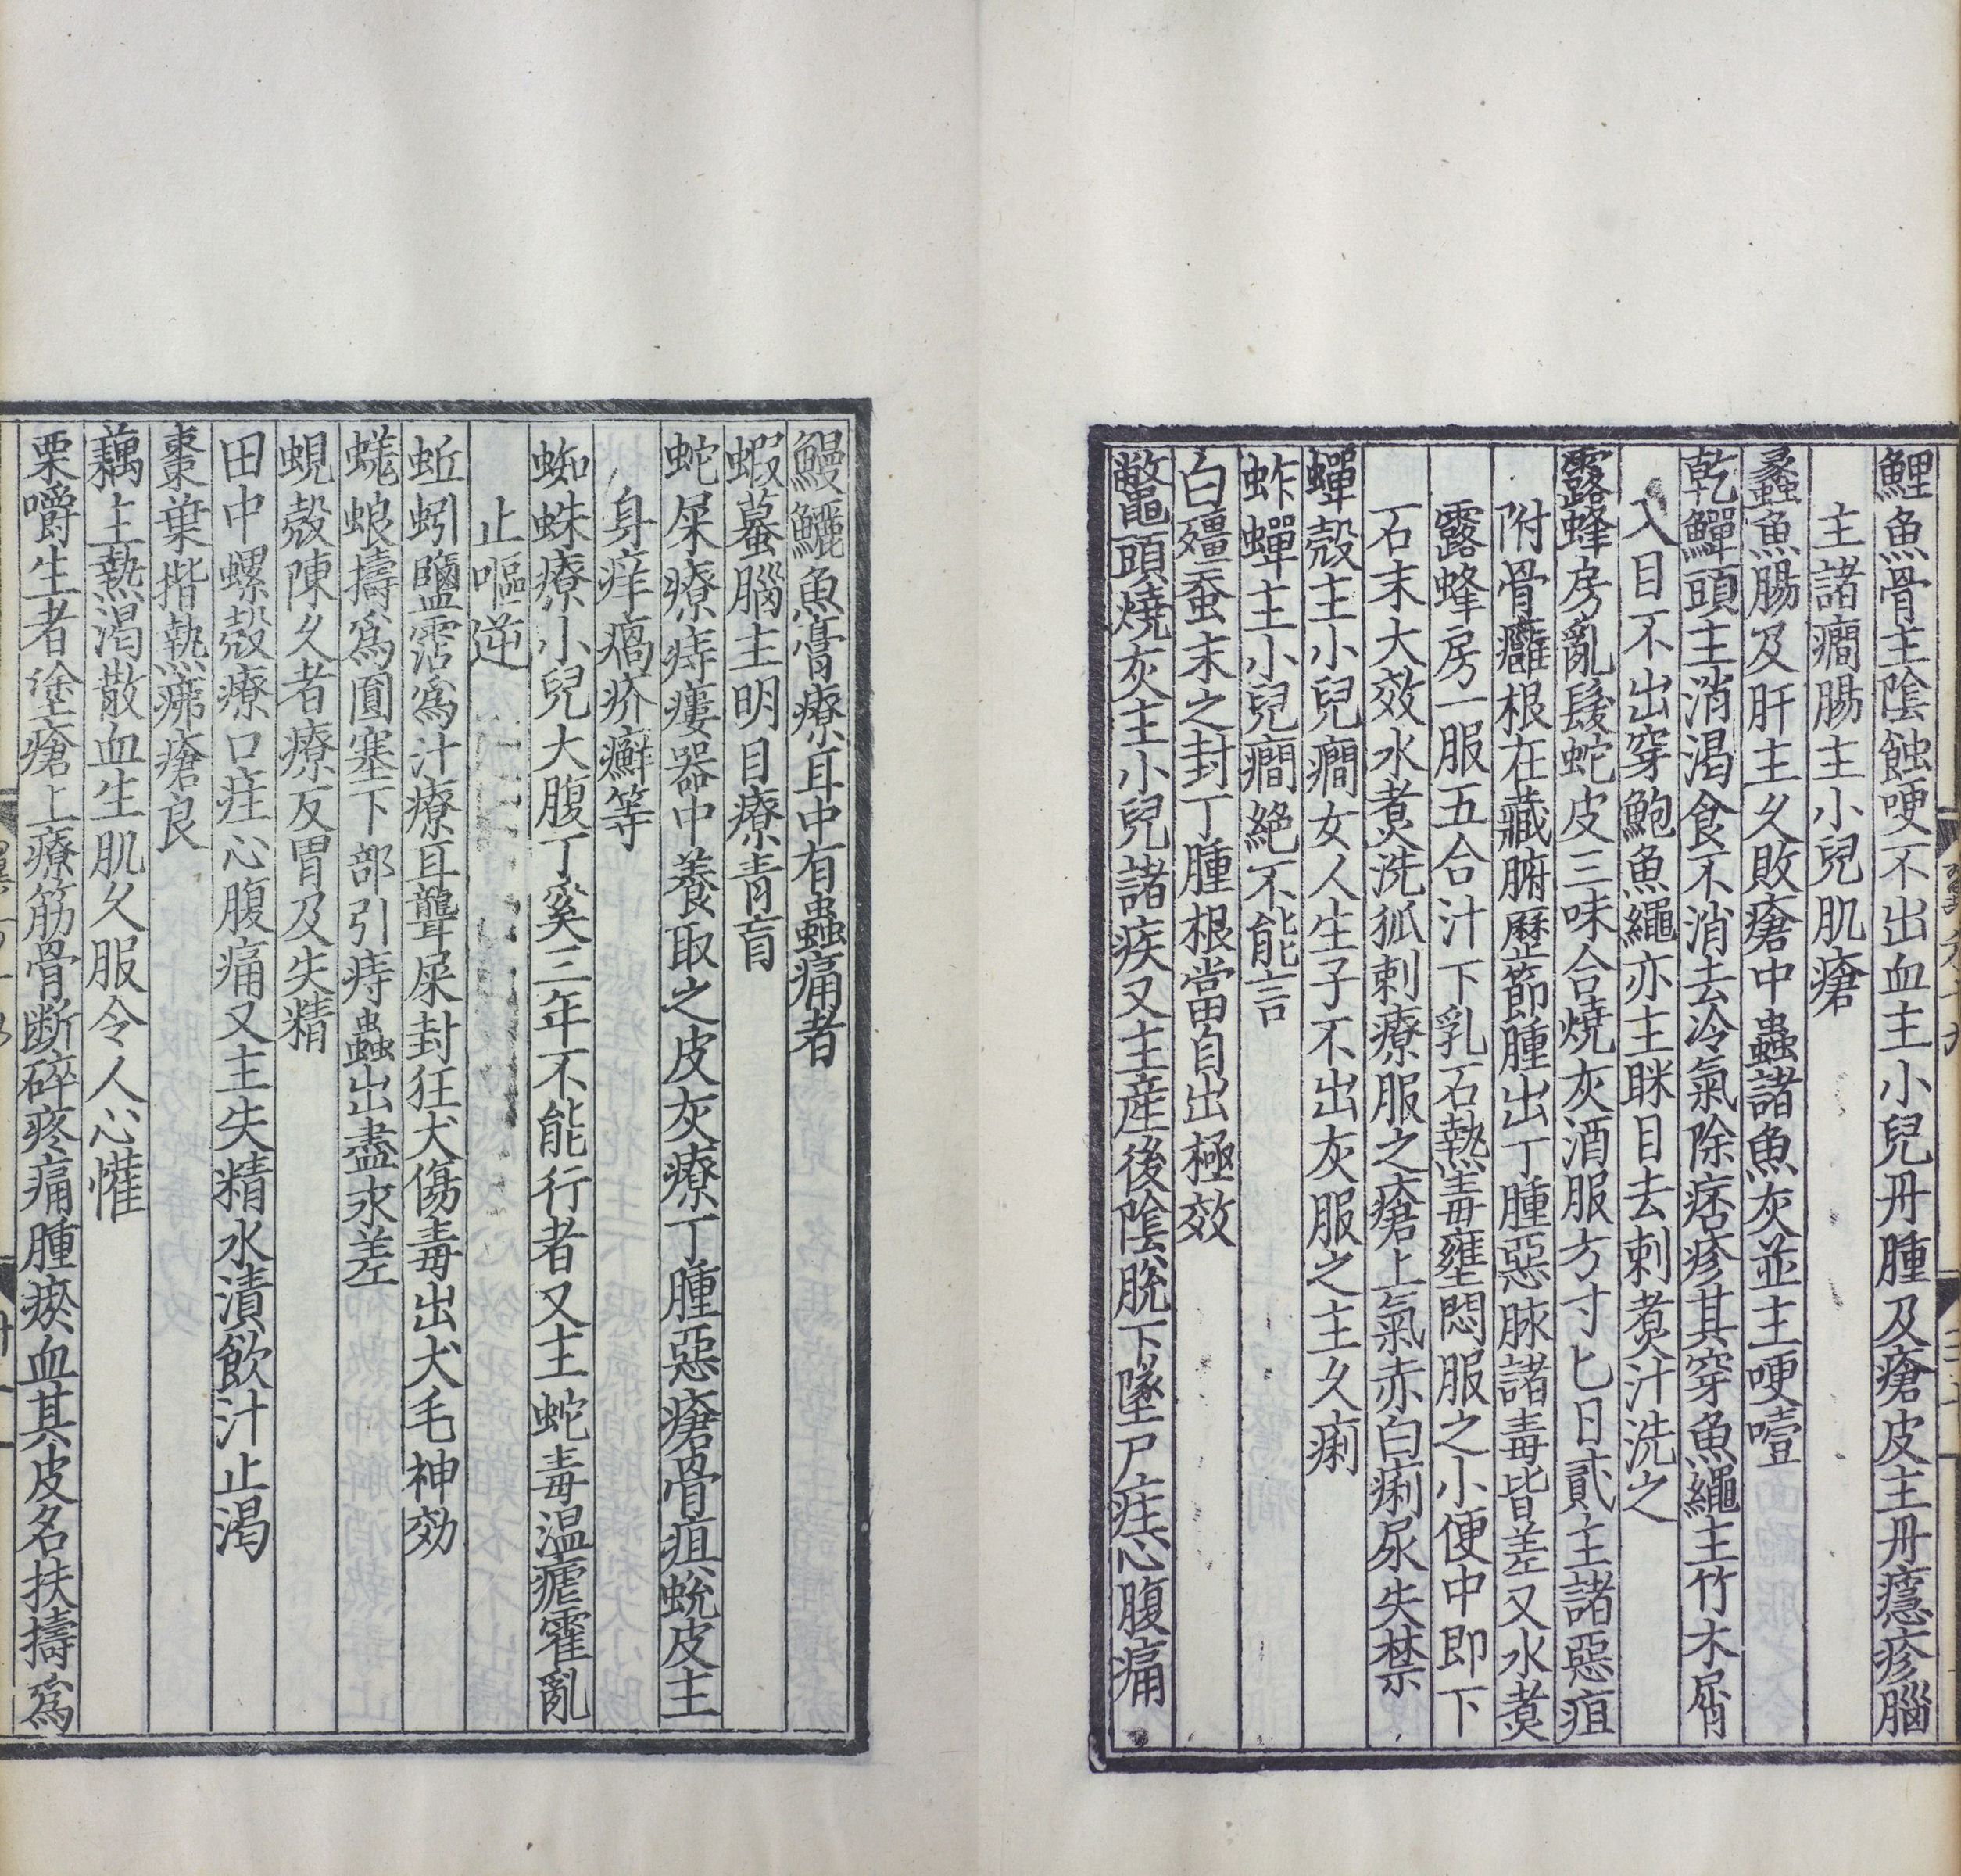 鯉魚骨主陰蝕哽不出血主小兒丹腫及瘡皮主丹癮疹腦
主諸癇腸主小兒肌瘡
蠡魚腸及肝主久敗瘡中蟲諸魚灰並主哽噎
乾鱓頭主消渴食不消去冷氣除痞疹其穿魚繩主竹木屑
入目不出穿鮑魚繩亦主眯目去刺煑汁洗之
露蜂房亂髮蛇皮三味合燒灰酒服方寸匕日貳主諸惡疽
附骨癰根在藏腑歷節腫出丁腫惡脉諸毒皆差又水煑
露蜂房一服五合汁下乳石熱毒壅悶服之小便中即下
石末大效水煑洗狐刺療服之療上氣赤白痢尿失禁
蟬殼主小兒癇女人生子不出灰服之主久痢
蚱蟬主小兒癇絕不能言
白殭蚕末之封丁腫根當自出極效
鼈頭燒灰主小兒諸疾又主産後陰脫下墜尸疰心腹痛
鰻鱺魚膏療耳中有蟲痛者
蝦蟇腦主明目療青盲
蛇屎療痔瘻器中養取之皮灰療丁腫惡瘡骨疽蛻皮主
身痒瘑疥癬等
蜘蛛療小兒大腹丁奚三年不能行者又主蛇毒温瘧霍亂
止嘔逆
蚯蚓鹽霑爲汁療耳聾屎封狂犬傷毒出犬毛神効
蜣蜋擣爲圓塞下部引痔蟲出盡永差
蜆殼陳久者療反胃及失精
田中螺殼療口疰心腹痛又主失精水漬飲汁止渴
棗葉揩熱疿瘡良
藕主熱渴散血生肌久服令人心懽
栗嚼生者塗瘡上療筋骨断碎疼痛腫瘀血其皮名扶擣爲